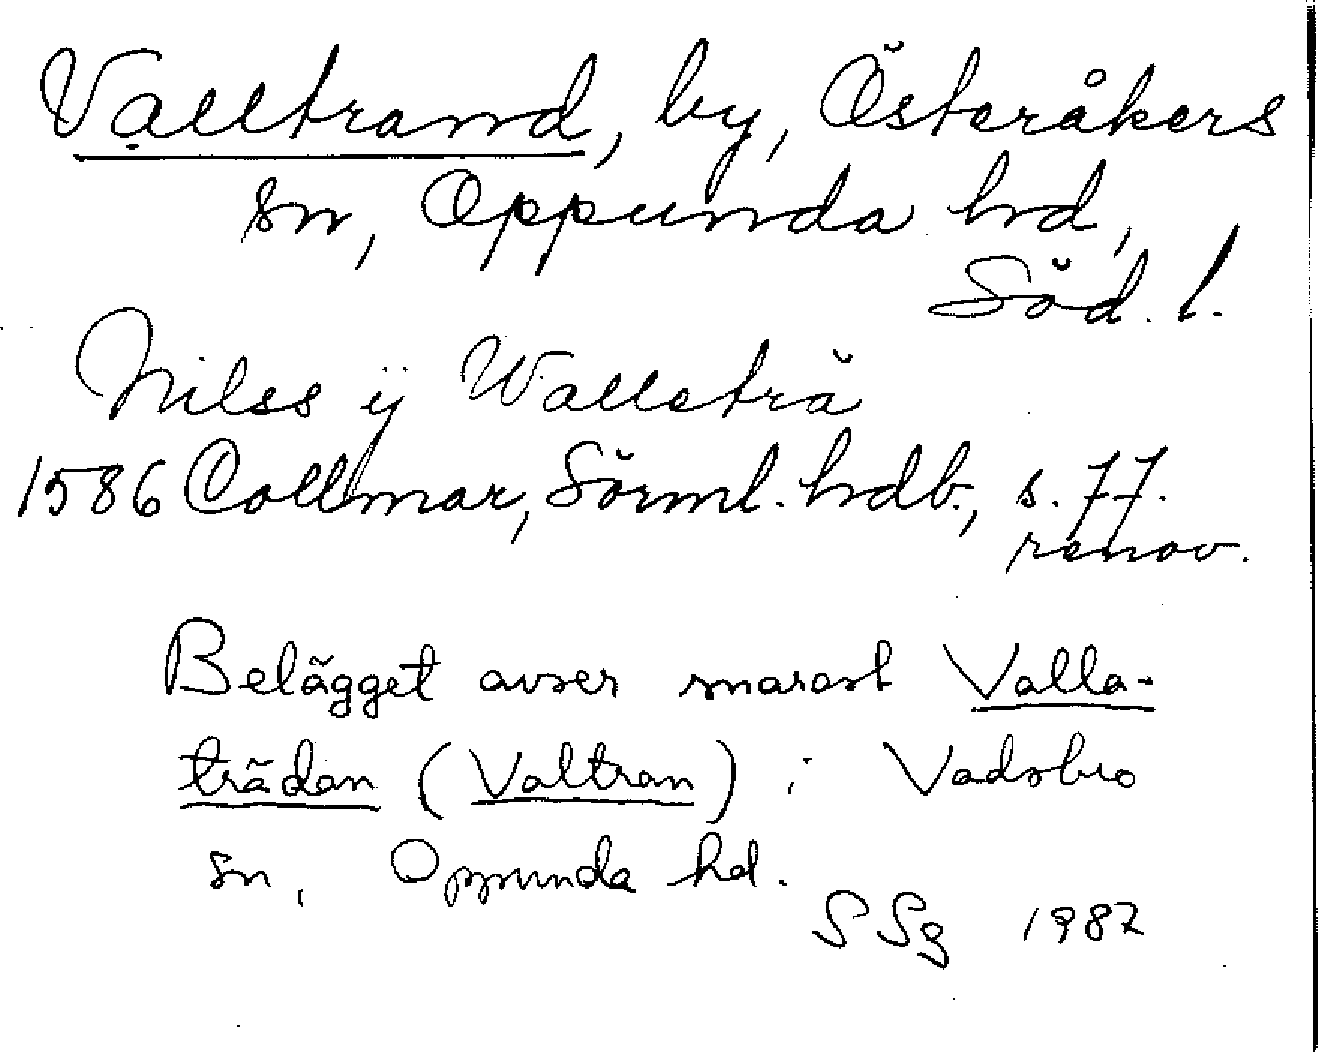 Valltrand, by, Österåkers
sn, Oppunda hd,
Söd. l.
Nilss ÿ Wallsträ
1586 Collmar, Sörml. hdb., s. 77.
renov.
Belägget avser snarast Valla-
trädan (Valtran) i Vadsbro
sn, Oppunda hd.
SSg 1987